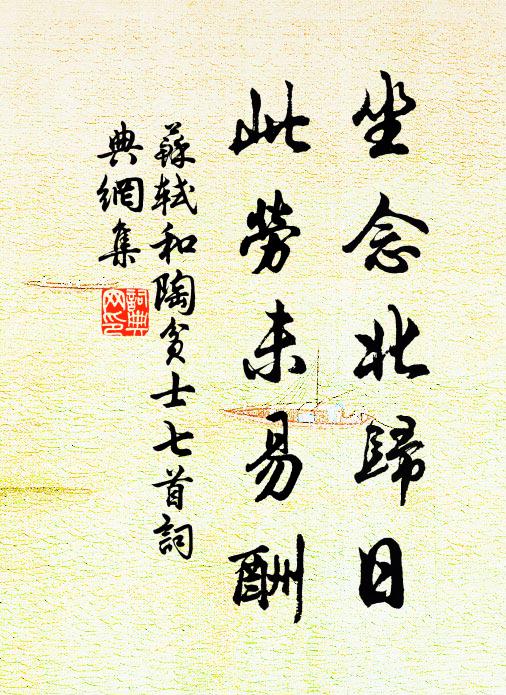 坐念北歸日
此勞未易酬
蘇軾和陶貧士七首詞
典網集
詞典網印